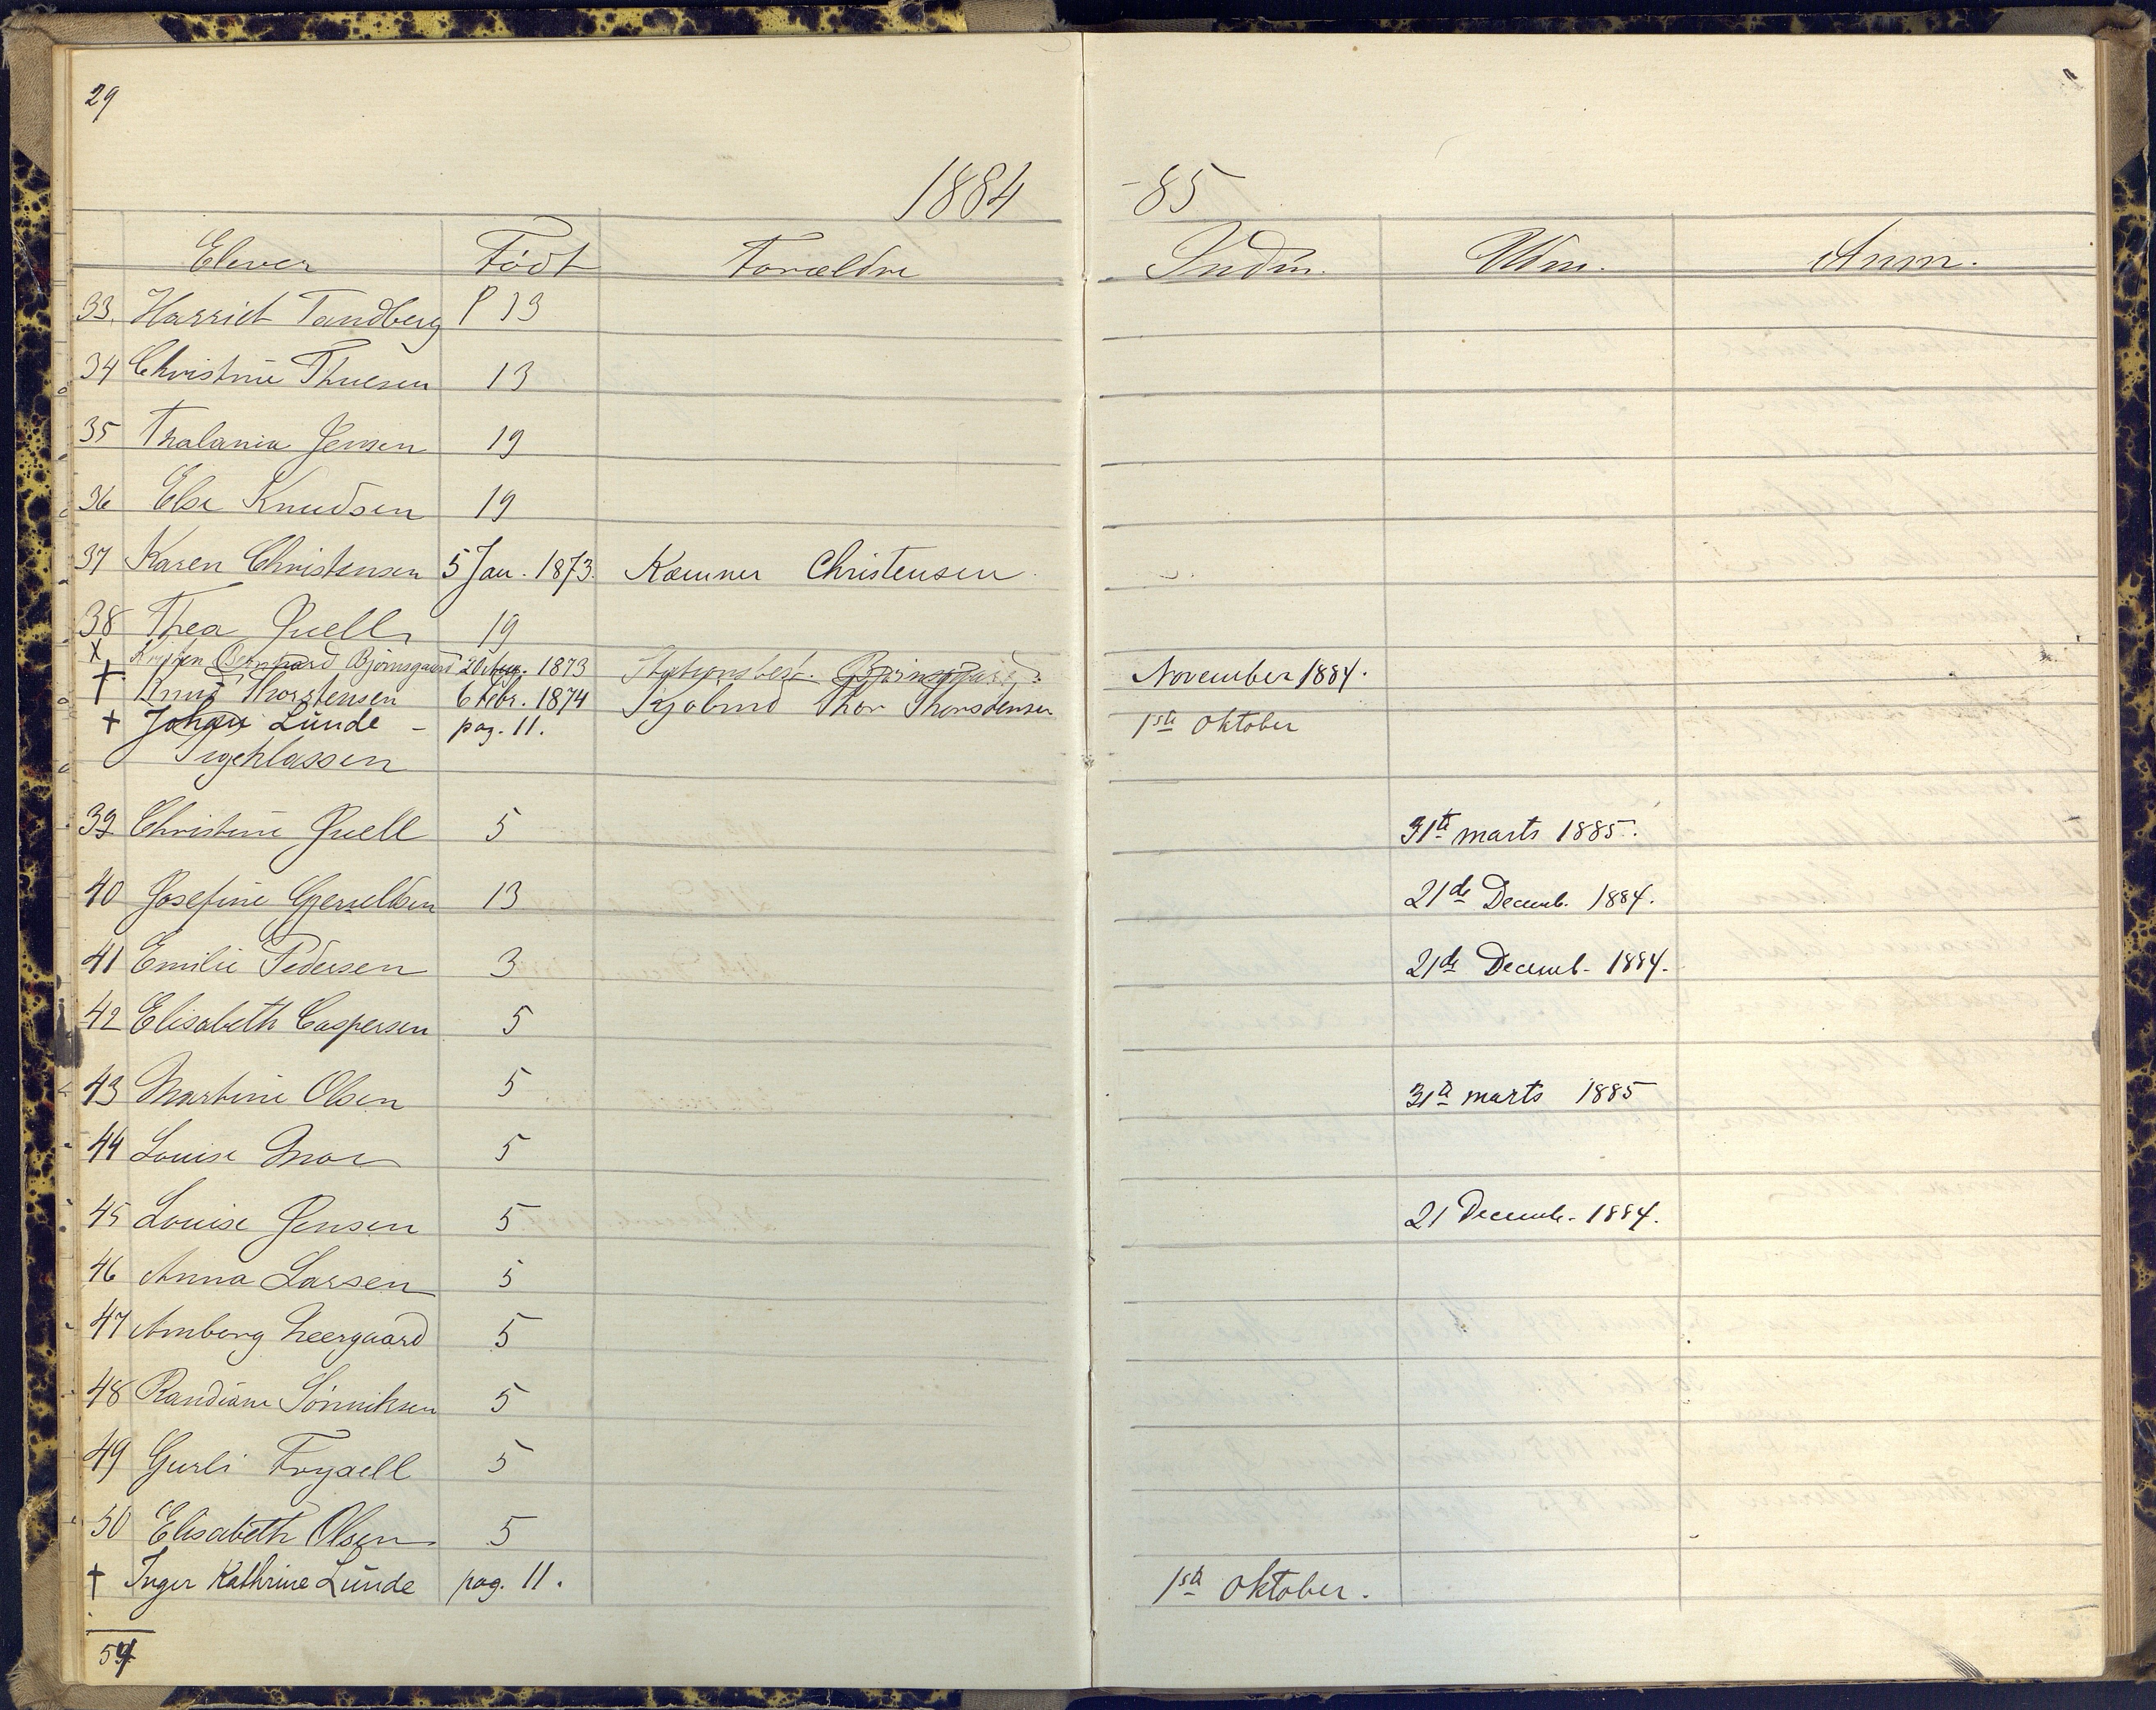 29
1884 -85
Elever Født Forældre Indm. Udm. Anm.
33. Harriet Tandberg P 13
34 Christine Thuesen 13
35 Thalania Jensen 19
36 Else Knudsen 19
37 Karen Christensen 5 Jan. 1873. Kæmner Christensen
38 Thea Juell 19
X Bernhard Bjørnsgaard 20 Aug. 1873 Stationsbest. Bjørnsgaard November 1884.
† Knud Thorstensen 6 Febr. 1874 Thor Thorstensen
† Johan Lunde - pag. 11. 1ste Oktober
Pigeklassen
39 Christine Juell 5 31te marts 1885.
40 Josefine 13 21de Decemb. 1884.
41 Emilie Pedersen 3 21de Decemb. 1884.
42 Elisabeth Caspersen 5
43 Martine Olsen 5 31te marts 1885
44 Louise Moe 5
45 Louise Jensen 5 21 Decemb. 1884.
46 Anna Larsen 5
47 Amborg Neergaard 5
48 Randiane Sønniksen 5
49 Gurli Fryxell 5
50 Elisabeth Olsen 5
† Inger Kathrine Lunde pag. 11. 1ste Oktober.
54